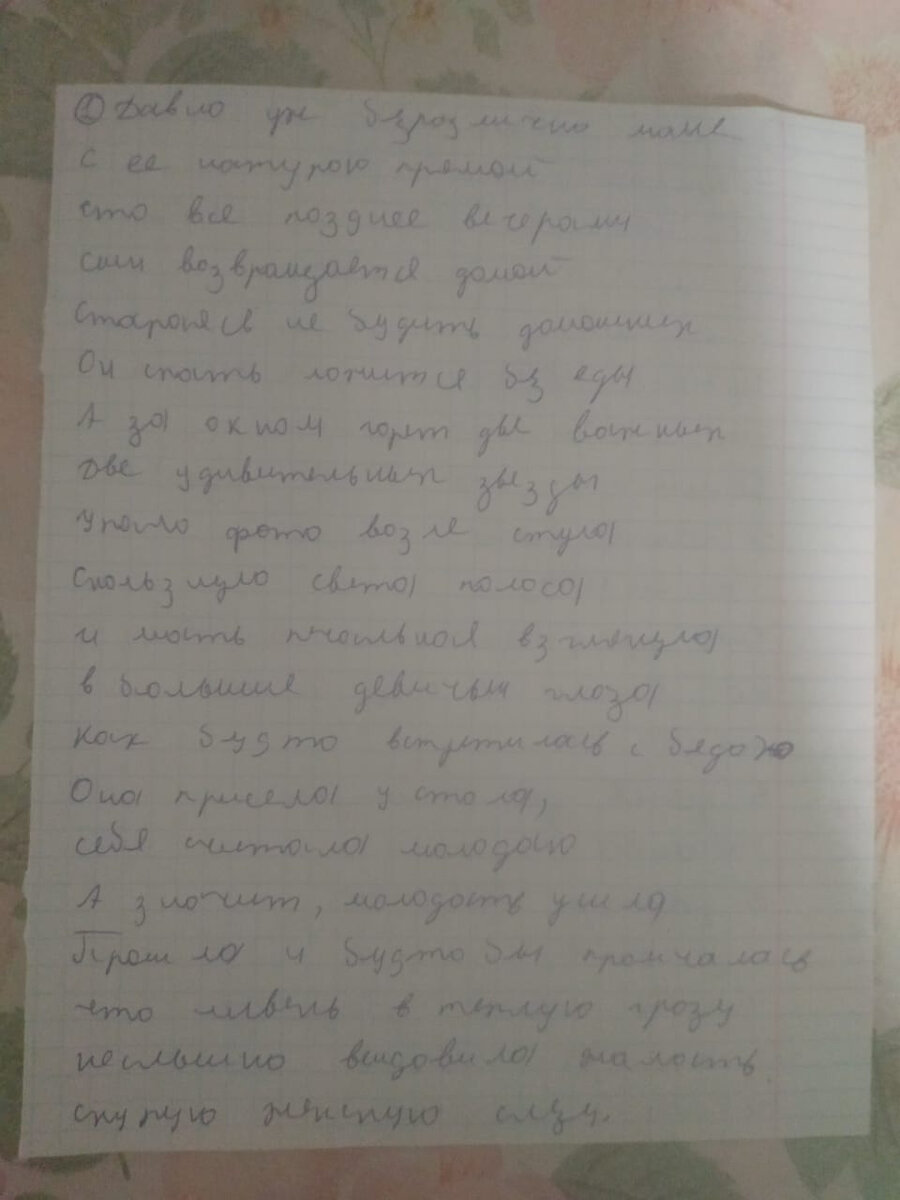 ① Давно уж безразлично маме
с ее натурою прямой
что все позднее вечерами
сын возвращается домой
стараясь не будить домашних
Он спать ложится без еды
А за окном горят две важных
Две удивительных звезды
Упало фото возле стула
Скользнула света полоса
и мать печальная взглянула
в большие девичьи глаза
Как будто встретилась с бедою
Она присела у стола,
себя считала молодою
А значит, молодость ушла
Прошла и будто бы промчалась
что ливень в теплую грозу
неслышно выдавила жалость
скупую женскую слезу.